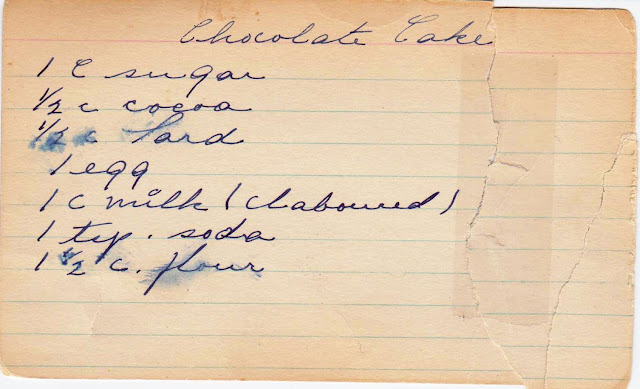 Chocolate Cake
1 C sugar
1/2 c cocoa
1/2 c lard
1 egg
1 C milk (claboured)
1 tsp. soda
1 1/2 c. flour